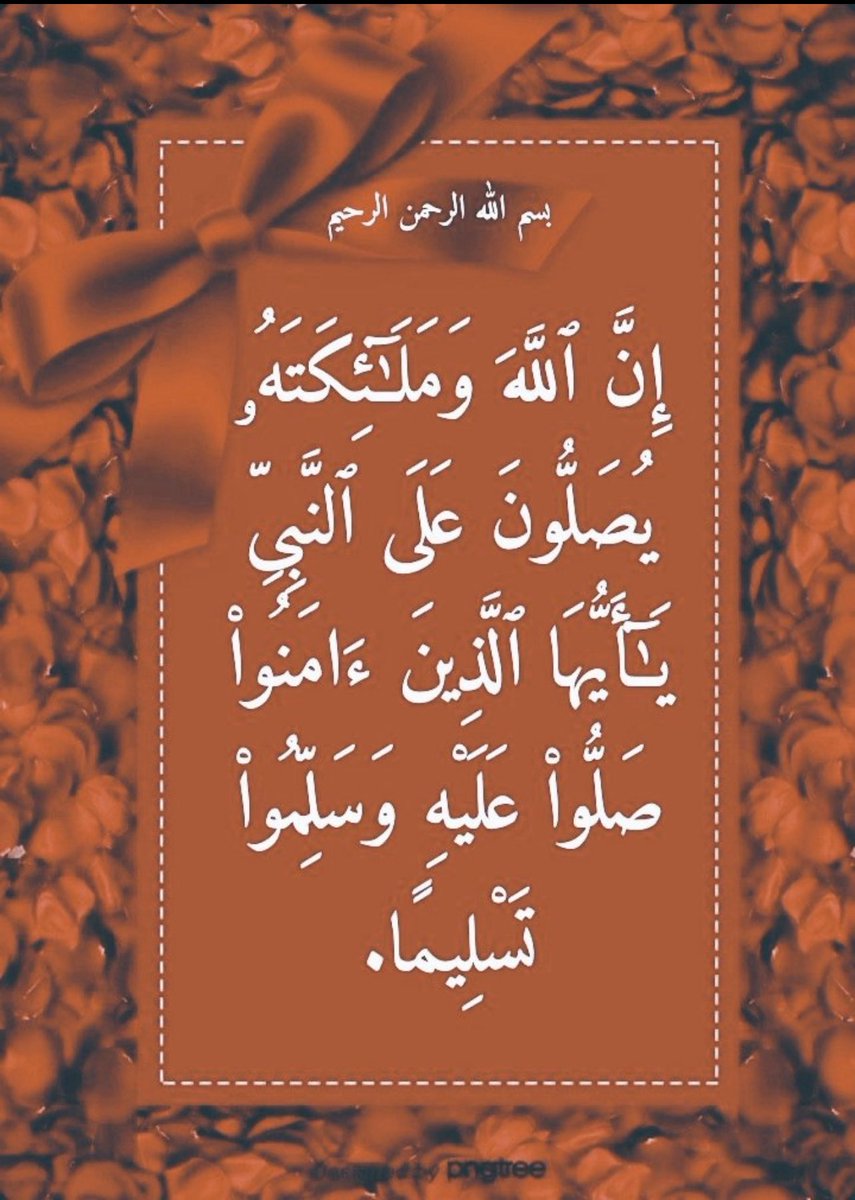 بسم الله الرحمن الرحيم
إِنَّ ٱللَّهَ وَمَلَـٰٓئِكَتَهُۥ
يُصَلُّونَ عَلَى ٱلنَّبِيِّ
يَـٰٓأَيُّهَا ٱلَّذِينَ ءَامَنُوا۟
صَلُّوا۟ عَلَيْهِ وَسَلِّمُوا۟
تَسْلِيمًا.
Designed by pngtree